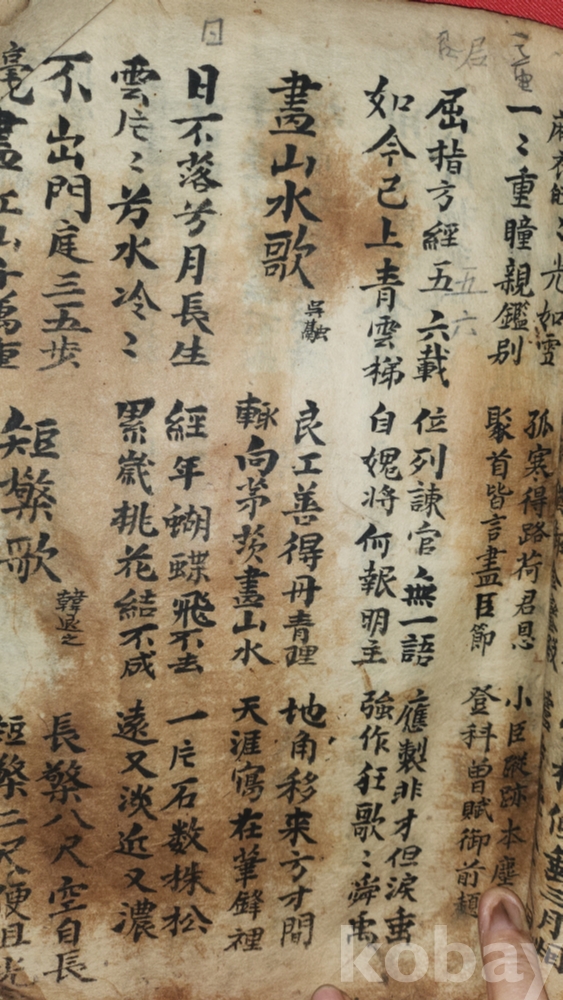 麻衣皎ミ光如雪
一ミ重瞳親鑑別
孤寒得路荷君恩
聚首皆言盡臣節
小臣蹤跡本塵
登科曾賦御前題
屈指方經五六載
如今已上青雲梯
位列諫官無一語
自愧將何報明主
應製非才但淚垂
強作狂歌ミ舜禹
畫山水歌
吳融
良工善得丹青理
輒向茅茨畫山水
地角移來方寸間
天涯寫在筆鋒裡
日不落兮月長生
雲片ミ兮水冷ミ
經年蝴蝶飛不去
累歲桃花結不成
一片石數株松
遠又淡近又濃
不出門庭三五步
覽盡江山千萬重
短檠歌
韓退之
長檠八尺空自長
短檠二尺便且光
日
五
六
kobay